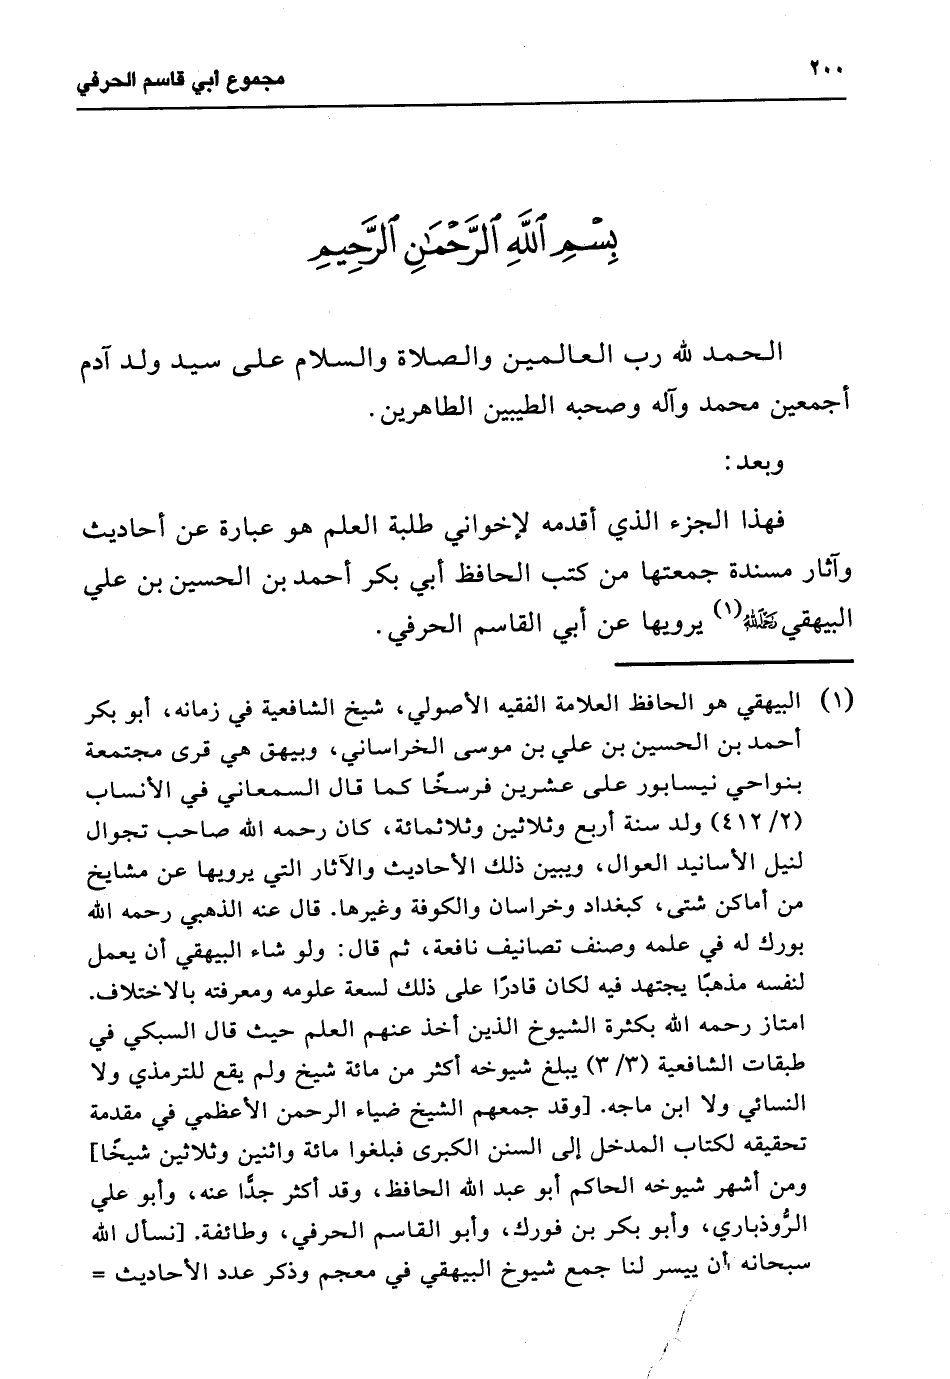 ٢٠٠
مجموع أبي قاسم الحرفي
بِسْمِ ٱللَّهِ ٱلرَّحْمَٰنِ ٱلرَّحِيمِ
الحمد لله رب العالمين والصلاة والسلام على سيد ولد آدم
أجمعين محمد وآله وصحبه الطيبين الطاهرين.
وبعد:
فهذا الجزء الذي أقدمه لإخواني طلبة العلم هو عبارة عن أحاديث
وآثار مسندة جمعتها من كتب الحافظ أبي بكر أحمد بن الحسين بن علي
البيهقي رحمه الله(١) يرويها عن أبي القاسم الحرفي.
(١) البيهقي هو الحافظ العلامة الفقيه الأصولي، شيخ الشافعية في زمانه، أبو بكر
أحمد بن الحسين بن علي بن موسى الخراساني، وبيهق هي قرى مجتمعة
بنواحي نيسابور على عشرين فرسخًا كما قال السمعاني في الأنساب
(٤١٢/٢) ولد سنة أربع وثلاثين وثلاثمائة، كان رحمه الله صاحب تجوال
لنيل الأسانيد العوال، ويبين ذلك الأحاديث والآثار التي يرويها عن مشايخ
من أماكن شتى، كبغداد وخراسان والكوفة وغيرها. قال عنه الذهبي رحمه الله
بورك له في علمه وصنف تصانيف نافعة، ثم قال: ولو شاء البيهقي أن يعمل
لنفسه مذهبًا يجتهد فيه لكان قادرًا على ذلك لسعة علومه ومعرفته بالاختلاف.
امتاز رحمه الله بكثرة الشيوخ الذين أخذ عنهم العلم حيث قال السبكي في
طبقات الشافعية (٣/٣) يبلغ شيوخه أكثر من مائة شيخ ولم يقع للترمذي ولا
النسائي ولا ابن ماجه. [وقد جمعهم الشيخ ضياء الرحمن الأعظمي في مقدمة
تحقيقه لكتاب المدخل إلى السنن الكبرى فبلغوا مائة واثنين وثلاثين شيخًا]
ومن أشهر شيوخه الحاكم أبو عبد الله الحافظ، وقد أكثر جدًّا عنه، وأبو علي
الرُّوذباري، وأبو بكر بن فورك، وأبو القاسم الحرفي، وطائفة. [نسأل الله
سبحانه أن ييسر لنا جمع شيوخ البيهقي في معجم وذكر عدد الأحاديث =